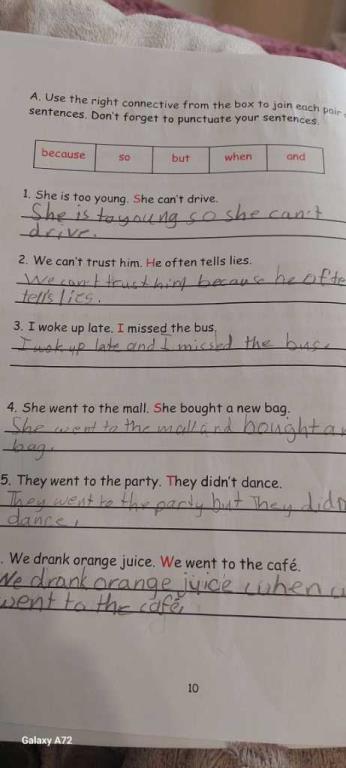 A. Use the right connective from the box to join each pair
sentences. Don't forget to punctuate your sentences.
because so but when and
1. She is too young. She can't drive.
She is to young so she can't
drive.
2. We can't trust him. He often tells lies.
We can't trust him because he ofte
tells lies.
3. I woke up late. I missed the bus.
I wok up late and I missed the bus.
4. She went to the mall. She bought a new bag.
She went to the mall and bought a
bag.
5. They went to the party. They didn't dance.
They went to the party but They didn
dance.
. We drank orange juice. We went to the café.
We drank orange juice when w
went to the café.
10
Galaxy A72